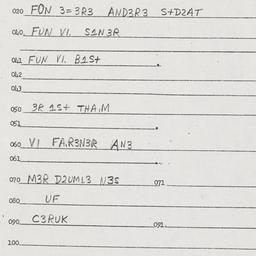 020 FON 3=3R3 AND3R3 S+D2AT
040 FUN VI. S1N3R
041 FUN VI. B1S+.
042
043
050 3R 1S+ THA.M
051.
060 VI FA.R3N3R AN3
061.
070 M3R D2UML3 N3S 071
080 UF
090 C3RUK 091
100